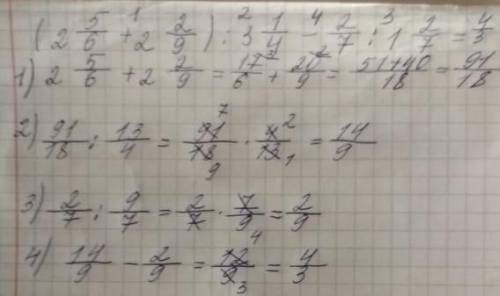 (2 5/6 +¹ 2 2/9) :² 3 1/4 -⁴ 2/7 :³ 1 2/7 = 4/3
1) 2 5/6 + 2 2/9 = 17/6 + 20²/9 = 51+40/18 = 91/18
2) 91/18 : 13/4 = 91⁷/18₉ · 4²/13₁ = 14/9
3) 2/7 : 9/7 = 2/7 · 7/9 = 2/9
4) 14/9 - 2/9 = 12⁴/9₃ = 4/3